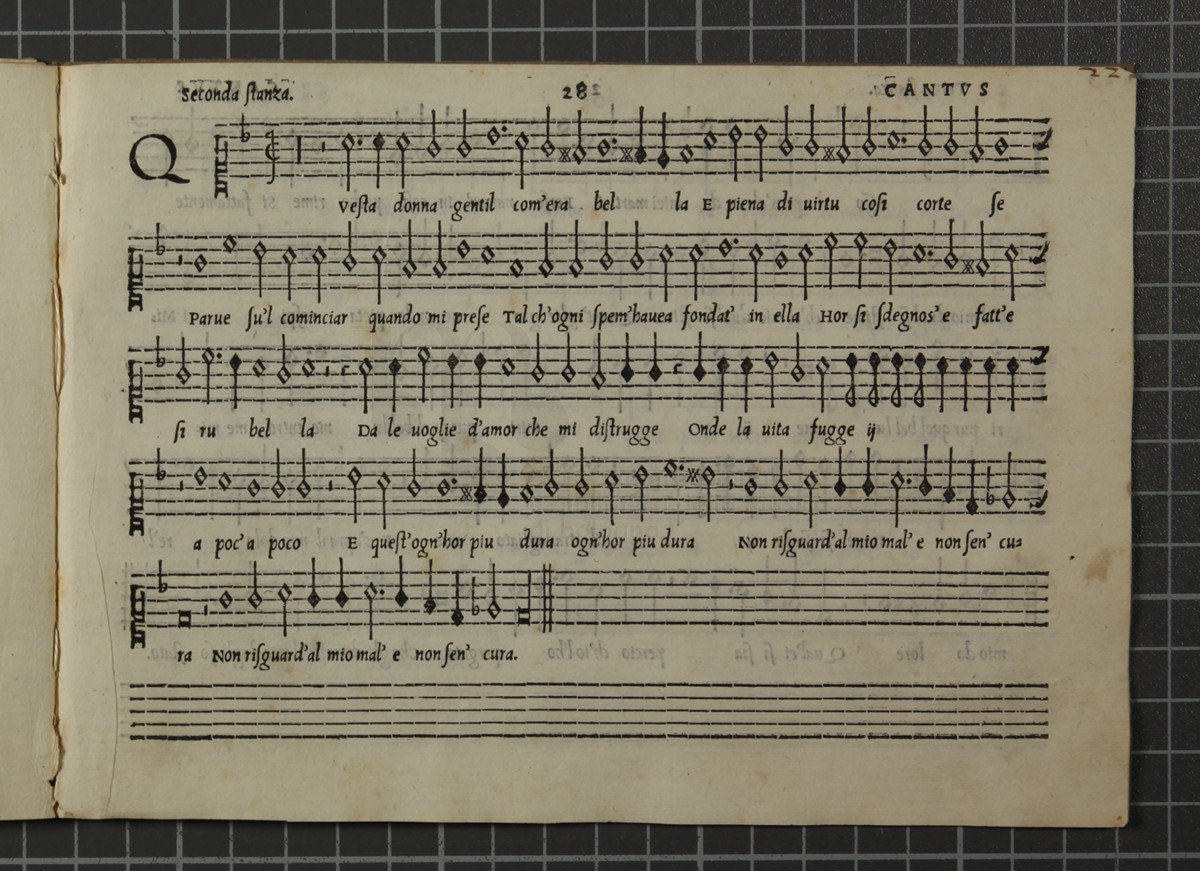 Seconda ſtanza. 28 CANTVS 22
QVeſta donna gentil com'era bel la E piena di uirtu coſi corte ſe
Parue ſu'l cominciar quando mi preſe Tal ch'ogni ſpem'hauea fondat' in ella Hor ſi ſdegnos' e fatt'e
ſi ru bel la Da le uoglie d'amor che mi diſtrugge Onde la uita fugge ij
a poc'a poco E queſt'ogn'hor piu dura ogn'hor piu dura Non riſguard'al mio mal' e non ſen' cu⸗
ra Non riſguard'al mio mal' e non ſen' cura.